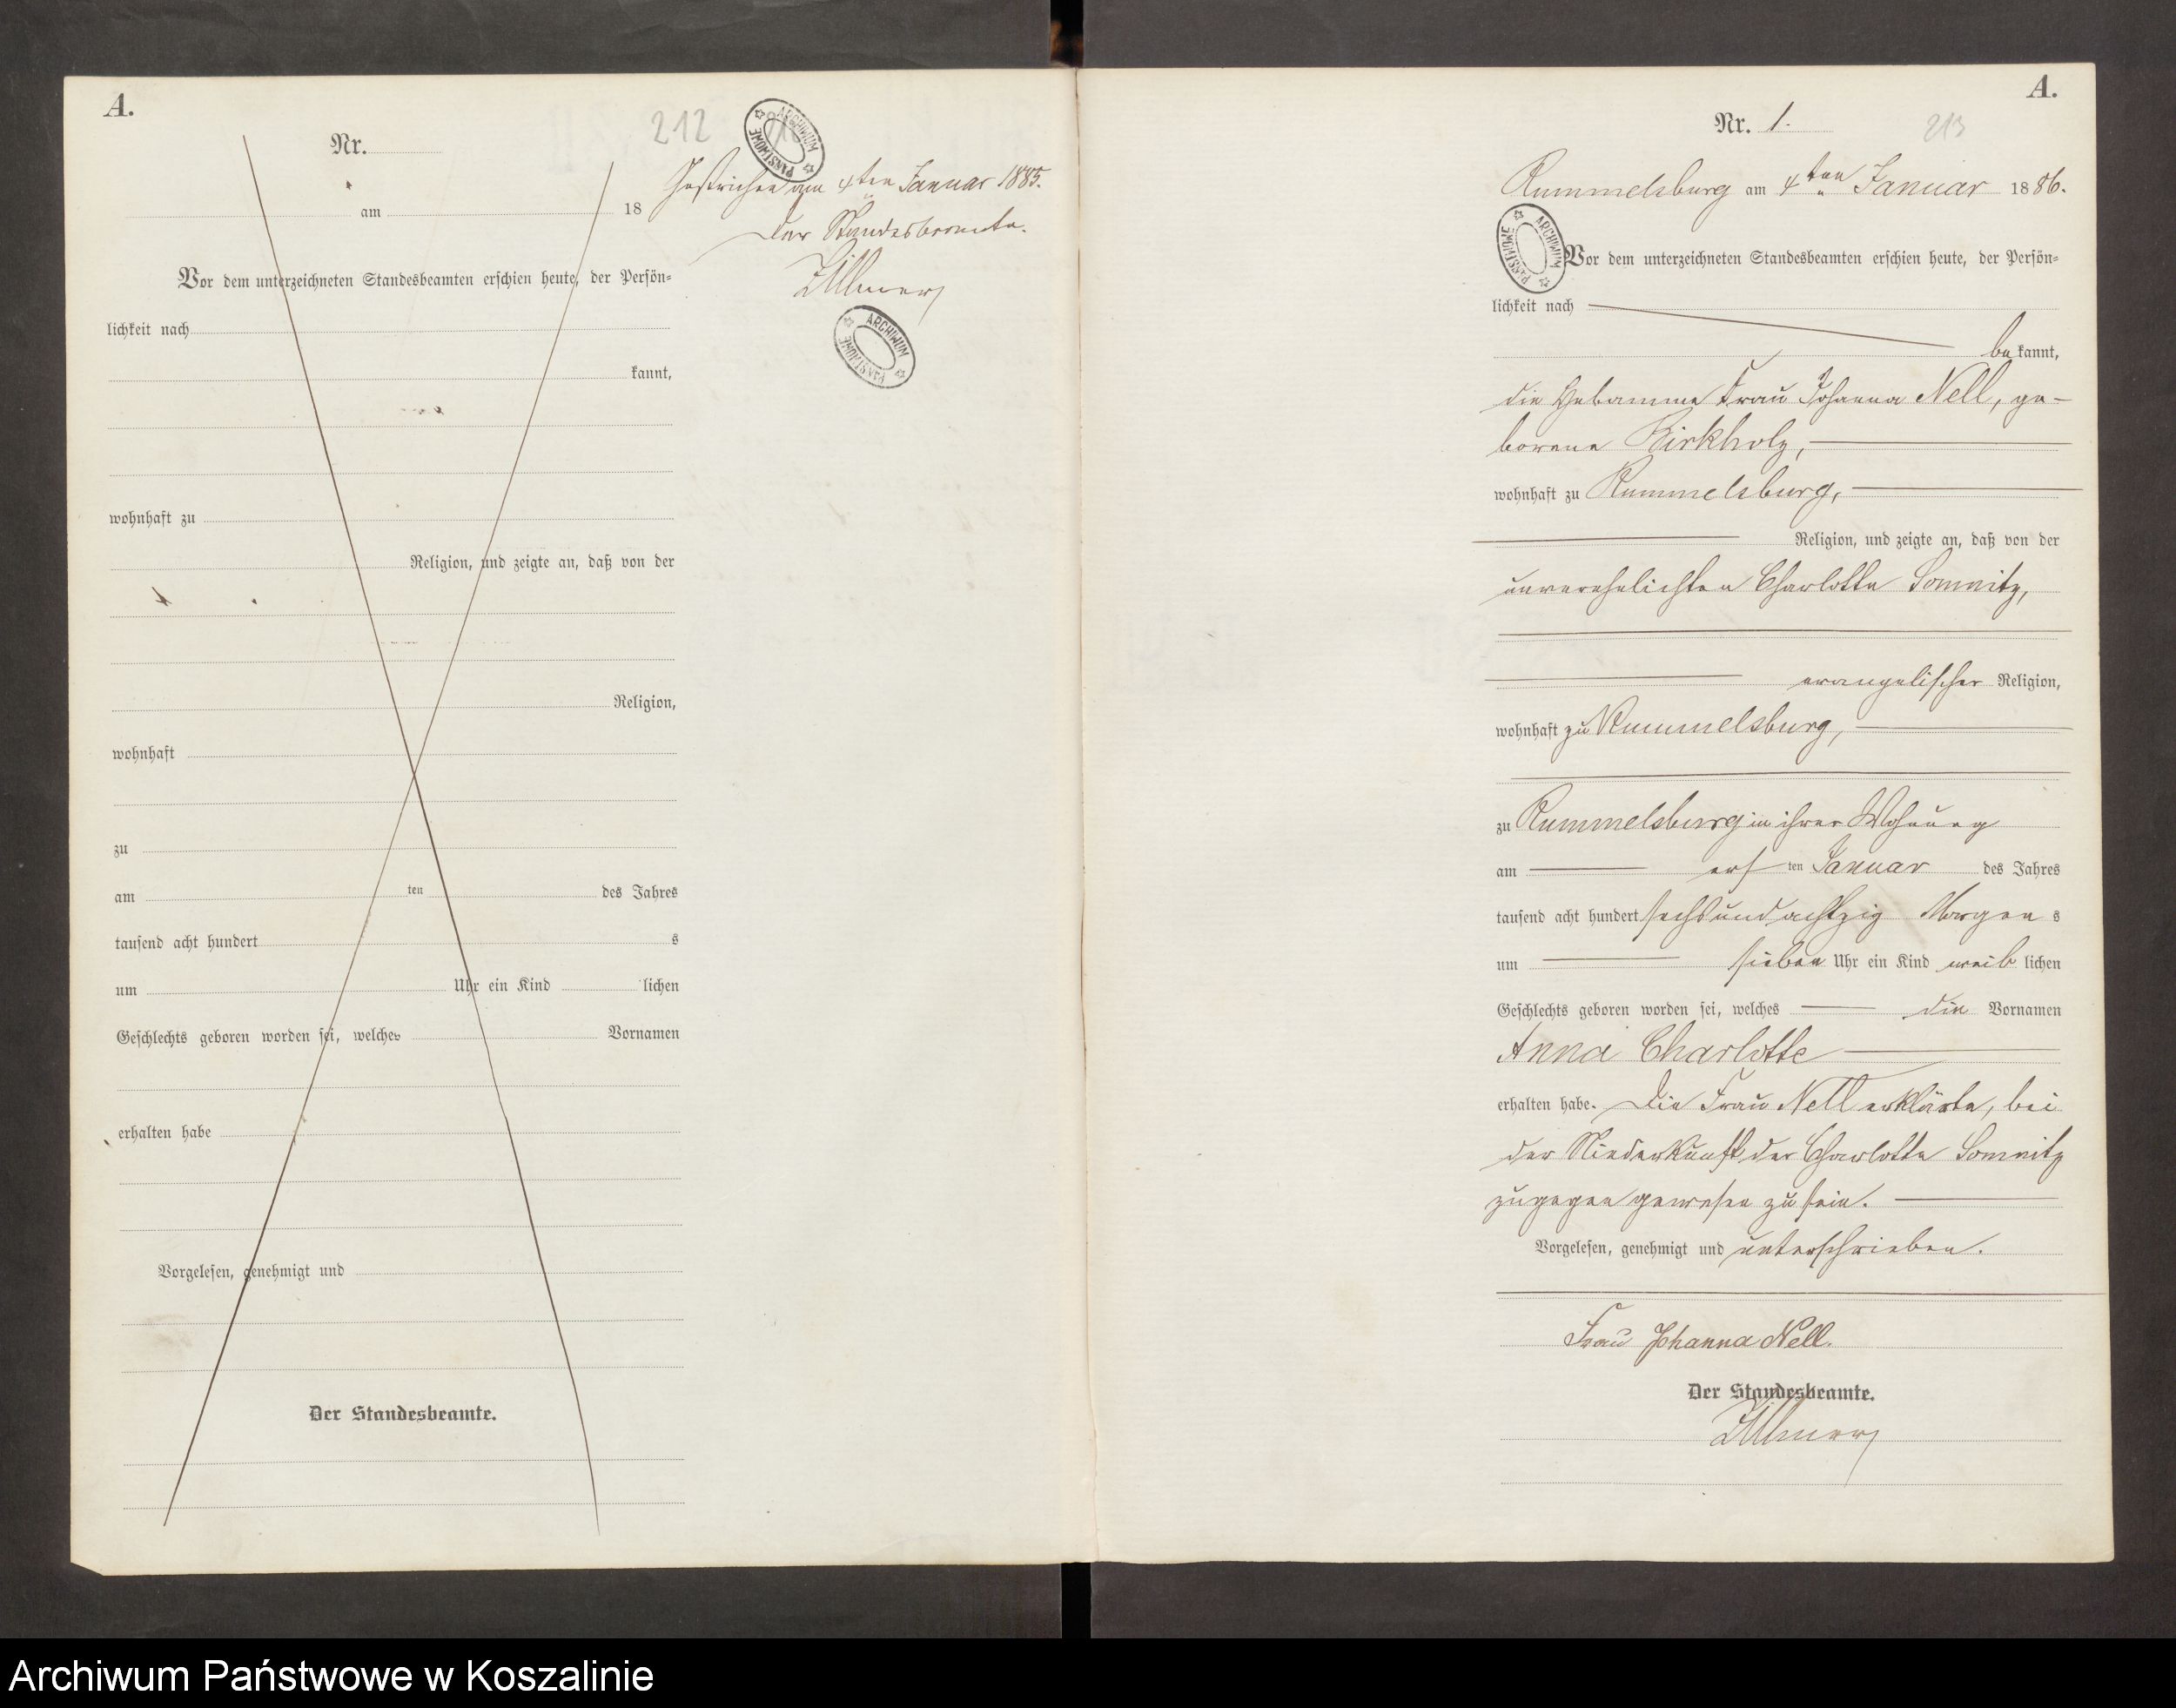 A.
Nr.
212
ARCHIWUM PAŃSTWOWE
Gestrichen am 4ten Januar 1885.
am 18
Der Standesbeamte.
Vor dem unterzeichneten Standesbeamten erschien heute, der Persön=
lichkeit nach
ARCHIWUM PAŃSTWOWE
kannt,
wohnhaft zu
Religion, und zeigte an, daß von der
Religion,
wohnhaft
zu
am ten des Jahres
tausend acht hundert s
um Uhr ein Kind lichen
Geschlechts geboren worden sei, welches Vornamen
erhalten habe
Vorgelesen, genehmigt und
Der Standesbeamte.
A.
Nr. 1.
213
Rummelsburg am 4ten Januar 1886.
ARCHIWUM PAŃSTWOWE
Vor dem unterzeichneten Standesbeamten erschien heute, der Persön=
lichkeit nach
be kannt,
die Hebamme Frau Johanna Nell, ge-
borene Birkholz,
wohnhaft zu Rummelsburg,
Religion, und zeigte an, daß von der
unverehelichten Charlotte Somnitz,
evangelischer Religion,
wohnhaft zu Rummelsburg,
zu Rummelsburg in ihrer Wohnung
am ers ten Januar des Jahres
tausend acht hundert sechsundachtzig Morgen s
um sieben Uhr ein Kind weib lichen
Geschlechts geboren worden sei, welches die Vornamen
Anna Charlotte
erhalten habe. Die Frau Nell erklärte, bei
der Niederkunft der Charlotte Somnitz
zugegen gewesen zu sein.
Vorgelesen, genehmigt und unterschrieben.
Frau Johanna Nell.
Der Standesbeamte.
Archiwum Państwowe w Koszalinie